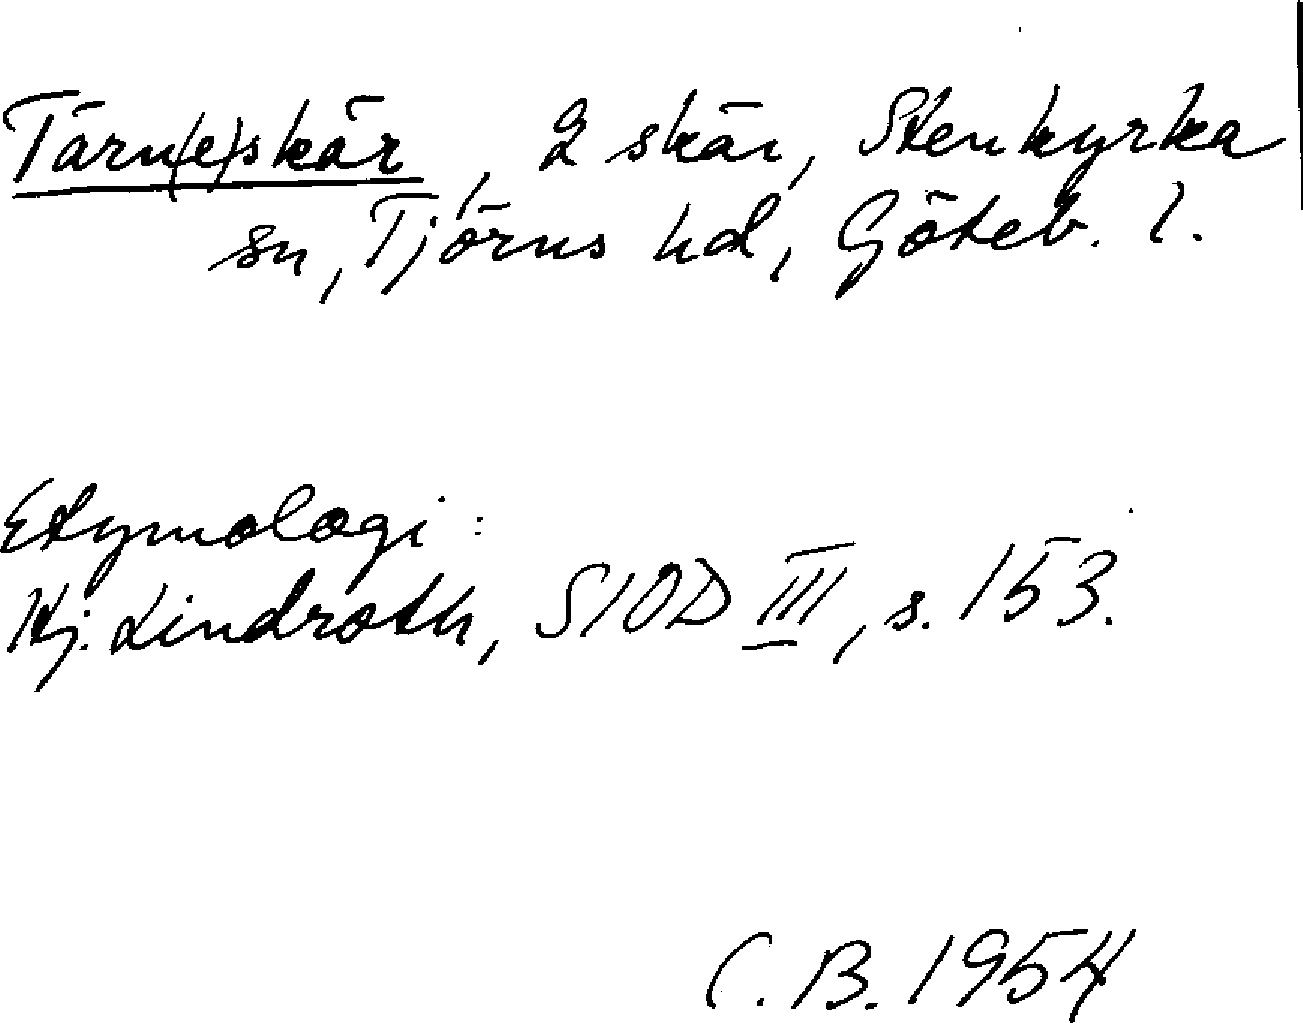 Tärn(e)skär, 2 skär, Stenkyrka
sn, Tjörns hd, Göteb. l.
Etymologi:
Hj. Lindroth, SIOD III, s. 153.
C. B. 1954